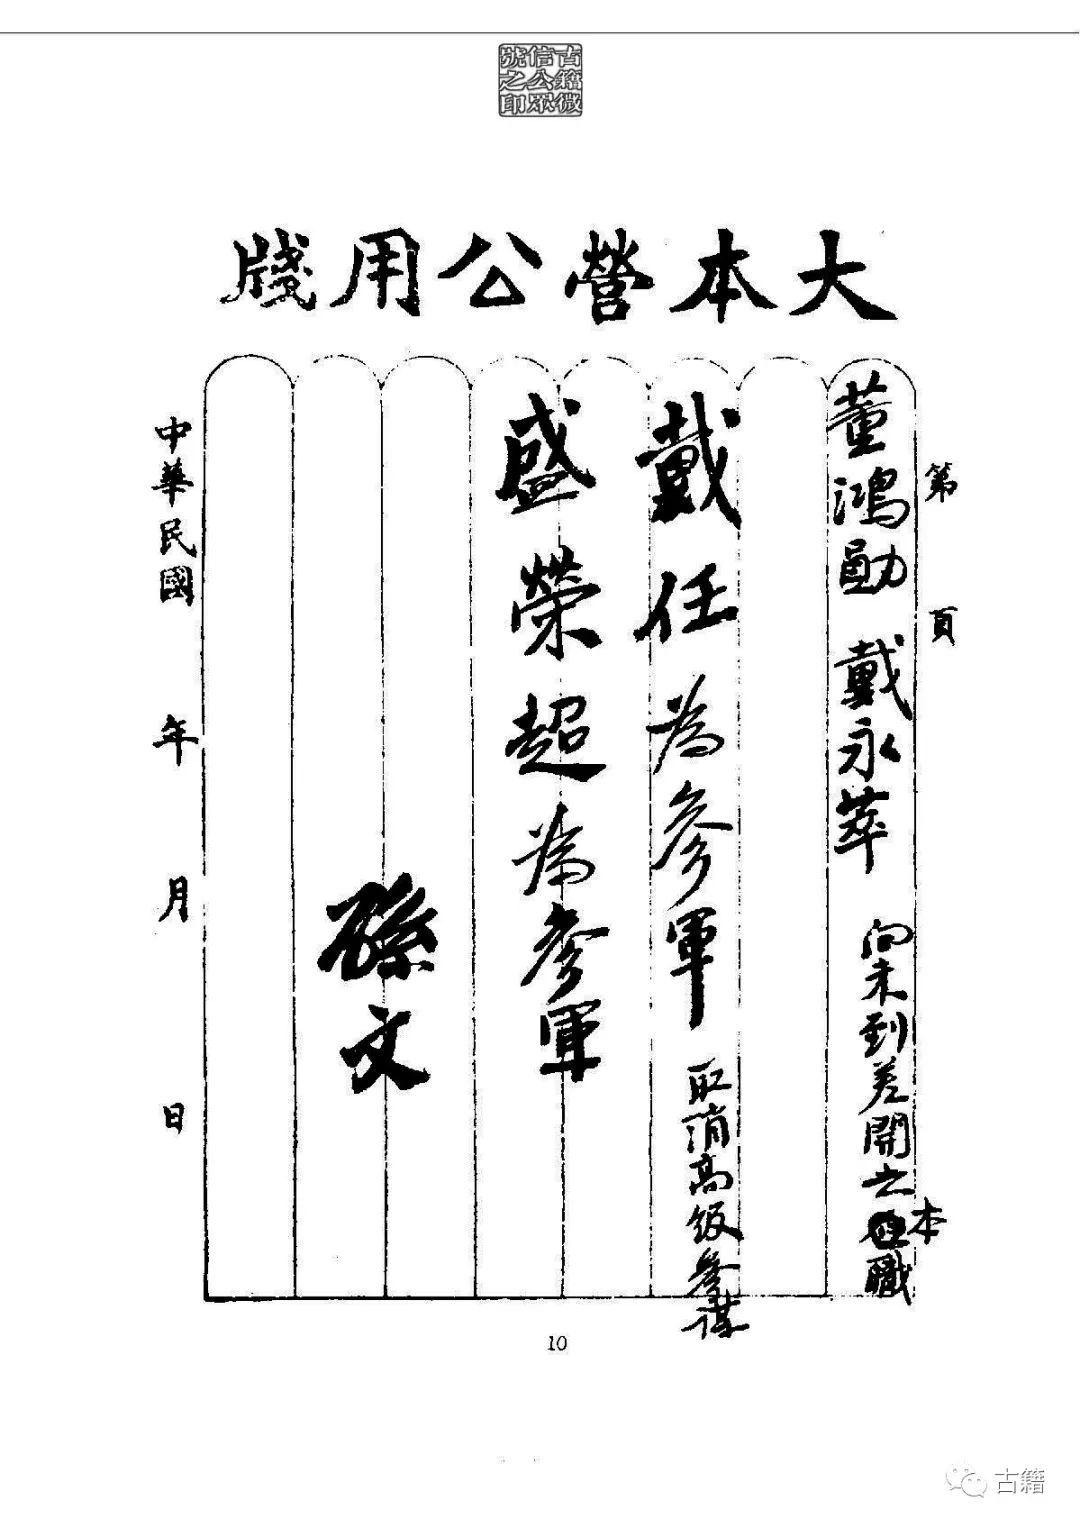 古籍微
信公眾
號之印
大本營公用牋
第 頁
董鴻勛 戴永萃 向未到差開去本職
戴任為參軍 取消高級參謀
盛榮超為參軍
孫文
中華民國 年 月 日
10
古籍